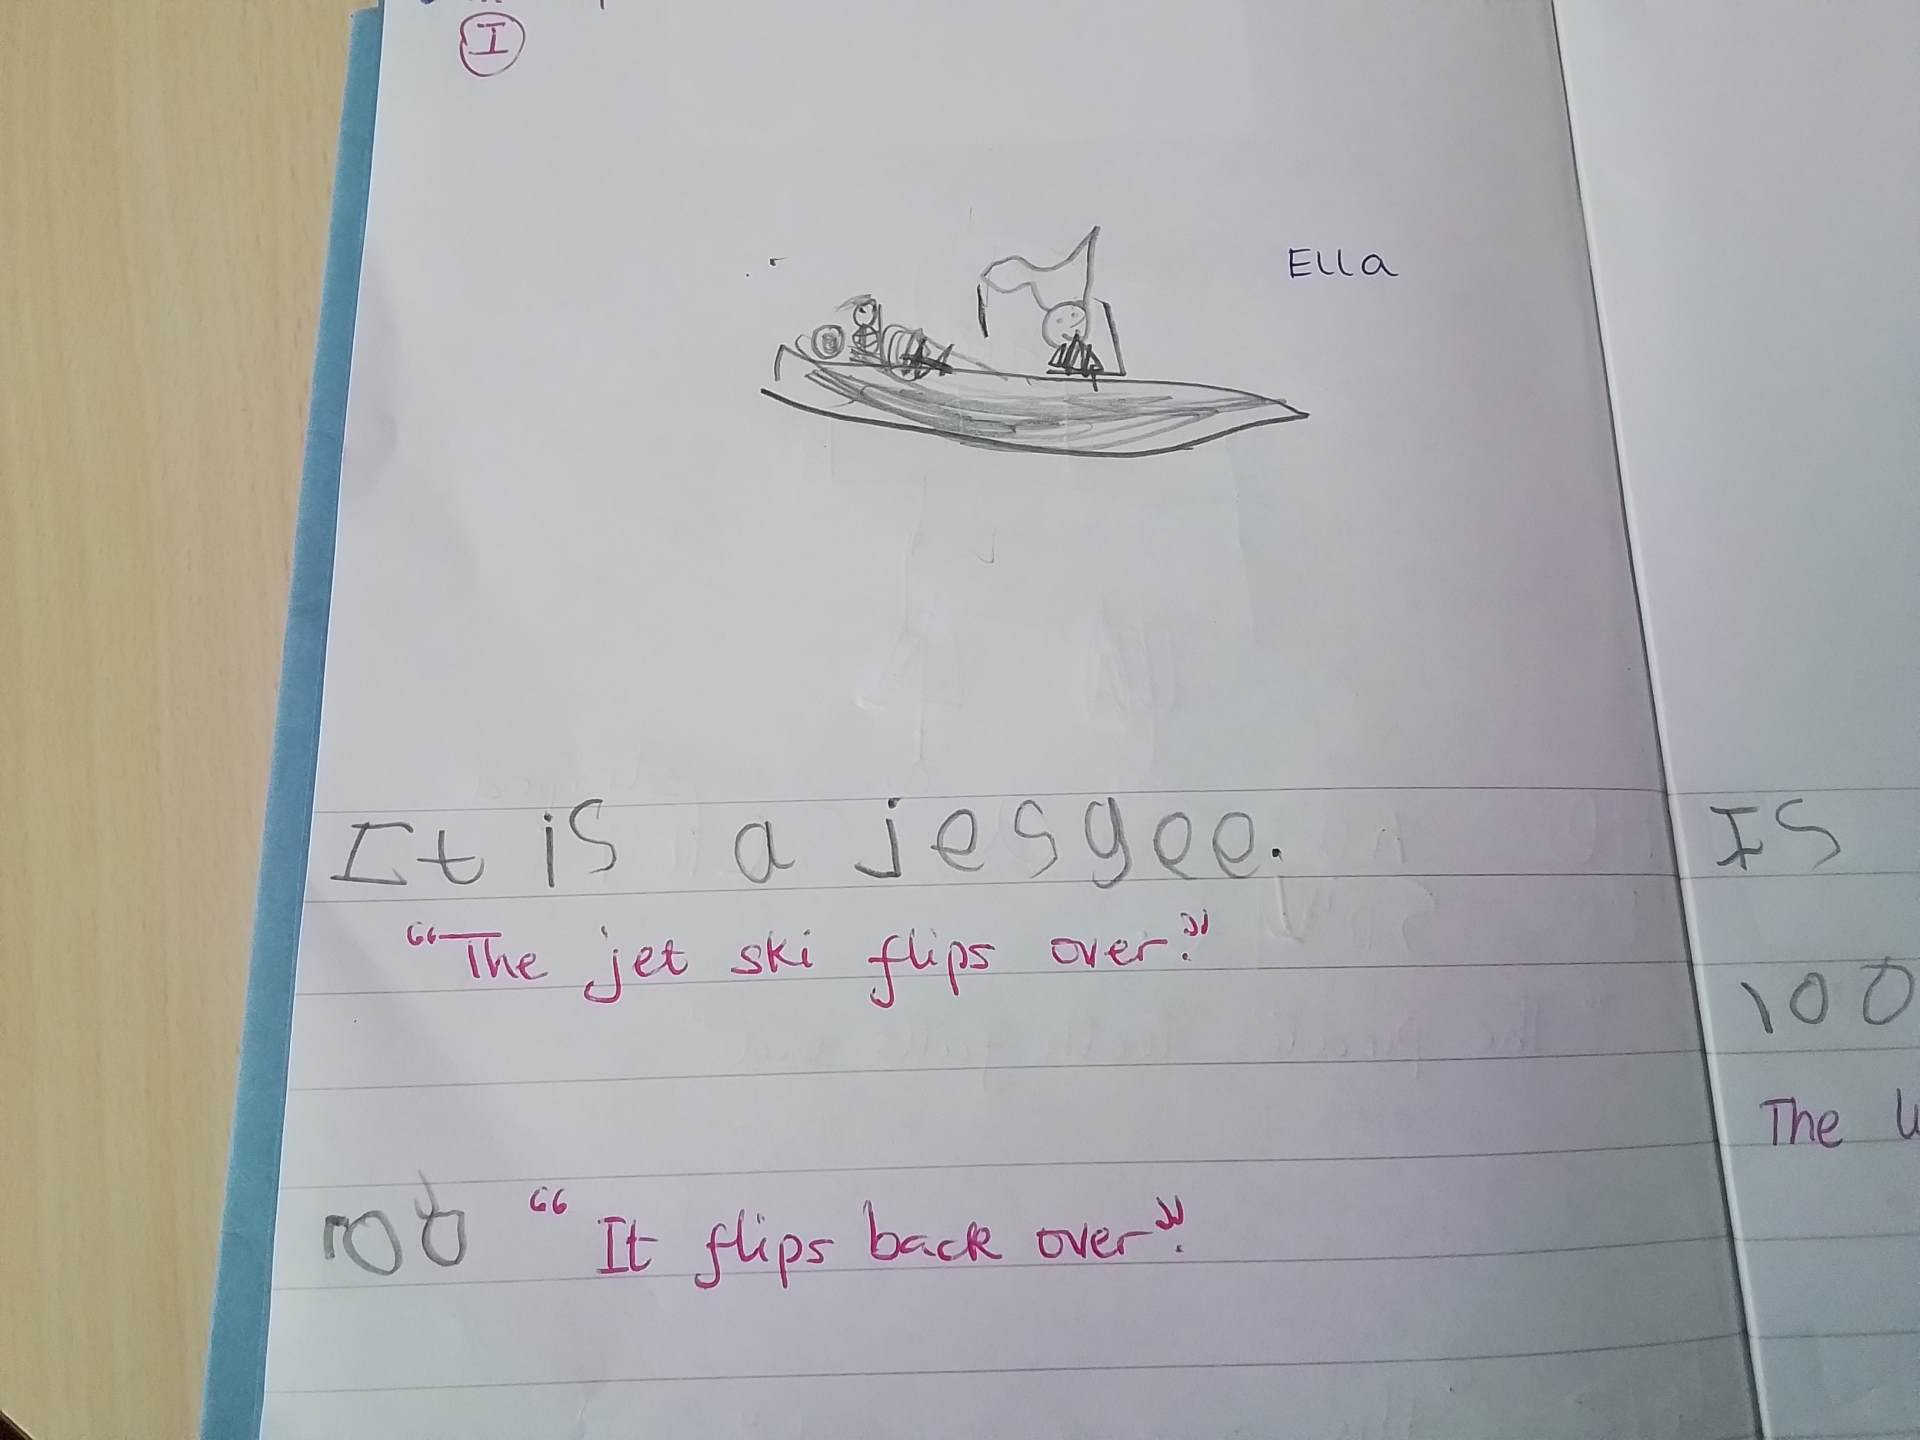 I
Ella
It is a jesgee.
"The jet ski flips over."
"It flips back over".
Is
100
The